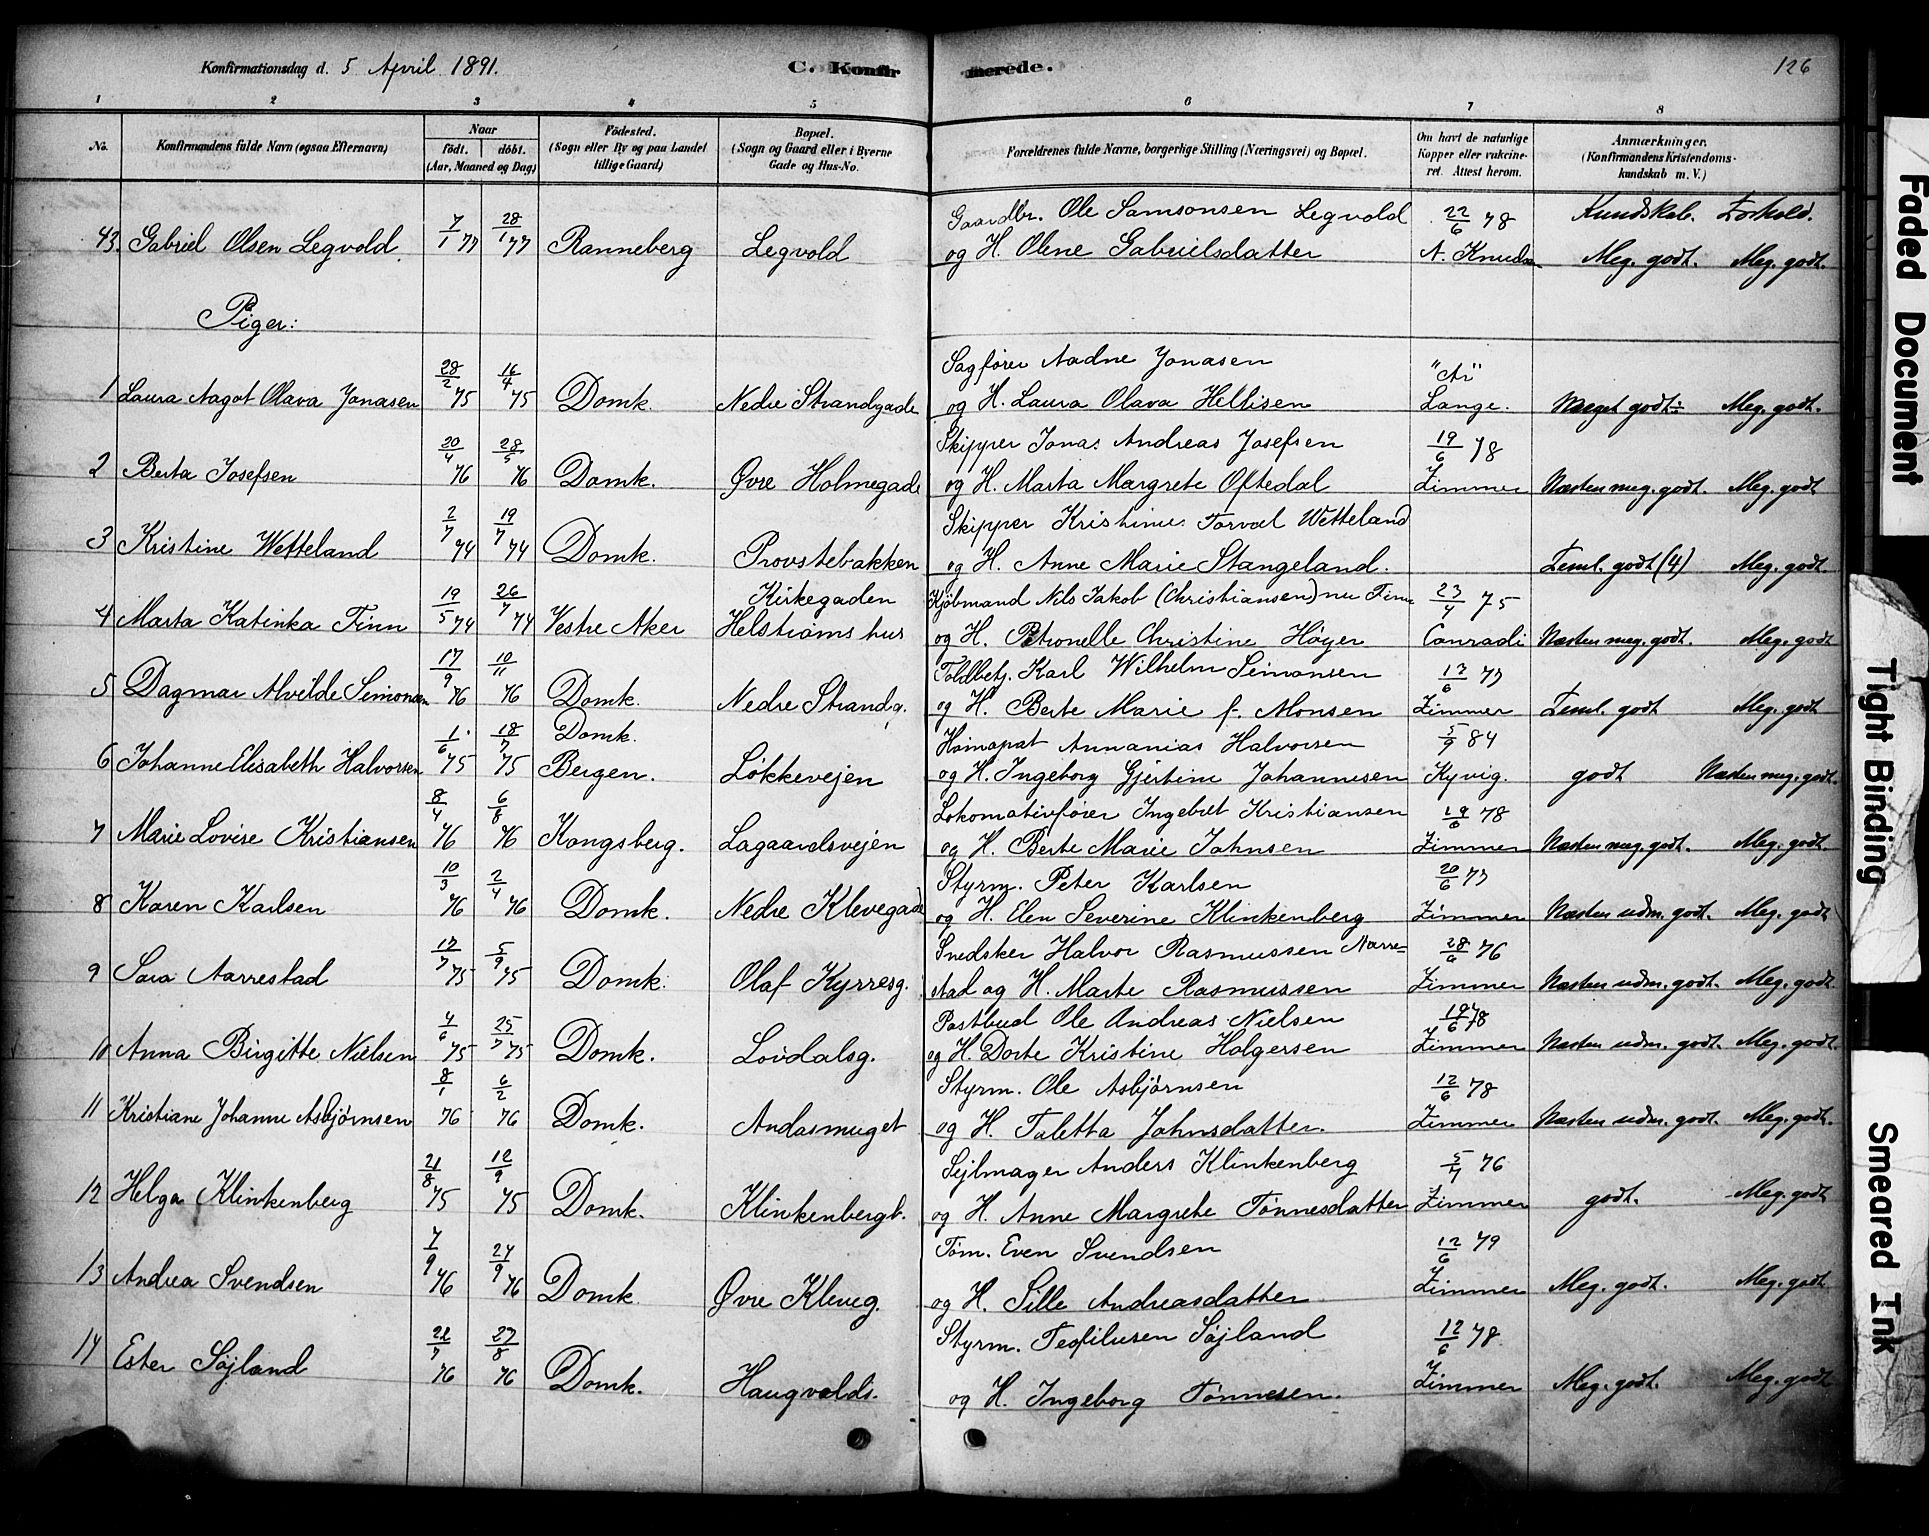 Konfirmationsdag d. 5 April 1891.
C. Konfirmerede.
126
1 2 3 4 5 6 7 8
No.
Konfirmandens fulde Navn (ogsaa Efternavn)
Naar
födt. döbt.
(Aar, Maaned og Dag)
Födested.
(Sogn eller By og paa Landet
tillige Gaard)
Bopæl.
(Sogn og Gaard eller i Byerne
Gade og Hus-No.
Forældrenes fulde Navne, borgerlige Stilling (Næringsvei) og Bopæl.
Om havt de naturlige
Kopper eller vakcine-
ret. Attest herom.
Anmærkninger.
(Konfirmandens Kristendoms-
kundskab m. V.)
Gaardbr. Ole Samsonsen Legvold 22/6 78 Kundskab. Forhold.
43. Gabriel Olsen Legvold. 7/1 77 28/1 77 Ranneberg Legvold og H. Olene Gabrielsdatter A. Knudsen Meg. godt. Meg. godt.
Piger:
Sagfører Aadne Jonasen "At"
1 Laura Aagot Olava Jonasen 28/2 75 16/4 75 Domk. Nedre Strandgade og H. Laura Olava Hellisen Lange. Meget godt÷ Meg. godt.
Skipper Jonas Andreas Josefsen 19/6 78
2 Berta Josefsen 20/4 76 28/5 76 Domk. Øvre Holmegade og H. Marta Margrete Oftedal Zimmer Næsten meg. godt. Meg. godt
Skipper Kristine Torval Wetteland
3 Kristine Wetteland 2/7 74 19/7 74 Domk. Provstebakken og H. Anne Marie Stangeland. Teml. godt (4) Meg. godt.
Kirkegaden Kjöbmand Nils Jakob (Christiansen) nu Finn 23/4 75
4 Marta Katinka Finn 19/5 74 26/7 74 Vestre Aker Helstrøms hus og H. Petronelle Christine Höyer Conradi Næsten meg. godt. Meg. godt
Toldbetj. Karl Wilhelm Simonsen 17/6 77
5 Dagmar Alvilde Simonsen 17/9 76 10/11 76 Domk. Nedre Strandg. og H. Berte Marie f. Monsen Zimmer Teml. godt Meg. godt
Domk. Homøopat Annanias Halvorsen 5/9 84
6 Johanne Elisabeth Halvorsen 1/6 75 18/7 75 Bergen. Løkkevejen og H. Ingeborg Gjertine Johannesen Kyvig. godt Næsten meg. godt.
Lokomotivfører Ingebret Kristiansen 19/6 78
7 Marie Lovise Kristiansen 8/4 76 6/8 76 Kongsberg. Lagaardsvejen og H. Berte Marie Johnsen Zimmer Næsten meg. godt. Meg. godt.
Styrm. Peter Karlsen 20/6 77
8 Karen Karlsen 10/3 76 2/4 76 Domk. Nedre Klevegade og H. Elen Severine Klinkenberg Zimmer Næsten udm. godt. Meg. godt
Snedsker Halvor Rasmussen Aarre= 28/6 76
9 Sara Aarrestad 17/7 75 5/9 75 Domk. Olaf Kyrresg. stad og H. Marte Rasmussen Zimmer Næsten udm. godt. Meg. godt
Postbud Ole Andreas Nielsen 19/6 78
10 Anna Birgitte Nielsen 4/6 75 25/7 75 Domk. Lovdalsg. og H. Dorte Kristine Holgersen Zimmer Næsten udm. godt. Meg. godt.
Styrm. Ole Asbjørnsen 12/6 78
11 Kristiane Johanne Asbjørnsen 8/1 76 6/2 76 Domk. Andasmuget og H. Taletta Johnsdatter. Zimmer Næsten udm. godt Meg. godt.
Sejlmager Anders Klinkenberg 5/7 76
12 Helga Klinkenberg 21/8 75 12/9 75 Domk. Klinkenbergb. og H. Anne Margrete Tønnesdatter Zimmer godt. Meg. godt
Tøm. Even Svendsen 12/6 79
13 Andrea Svendsen 7/9 76 24/9 76 Domk. Øvre Kleveg. og H. Sille Andreasdatter Zimmer Meg. godt. Meg. godt
Styrm. Teofilusen Söjland 12/6 78.
14 Ester Söjland 21/7 76 27/8 76 Domk. Haugvalds. og H. Ingeborg Tønnesen. Zimmer Meg. godt. Meg. godt
Faded Document
Tight Binding
Smeared Ink